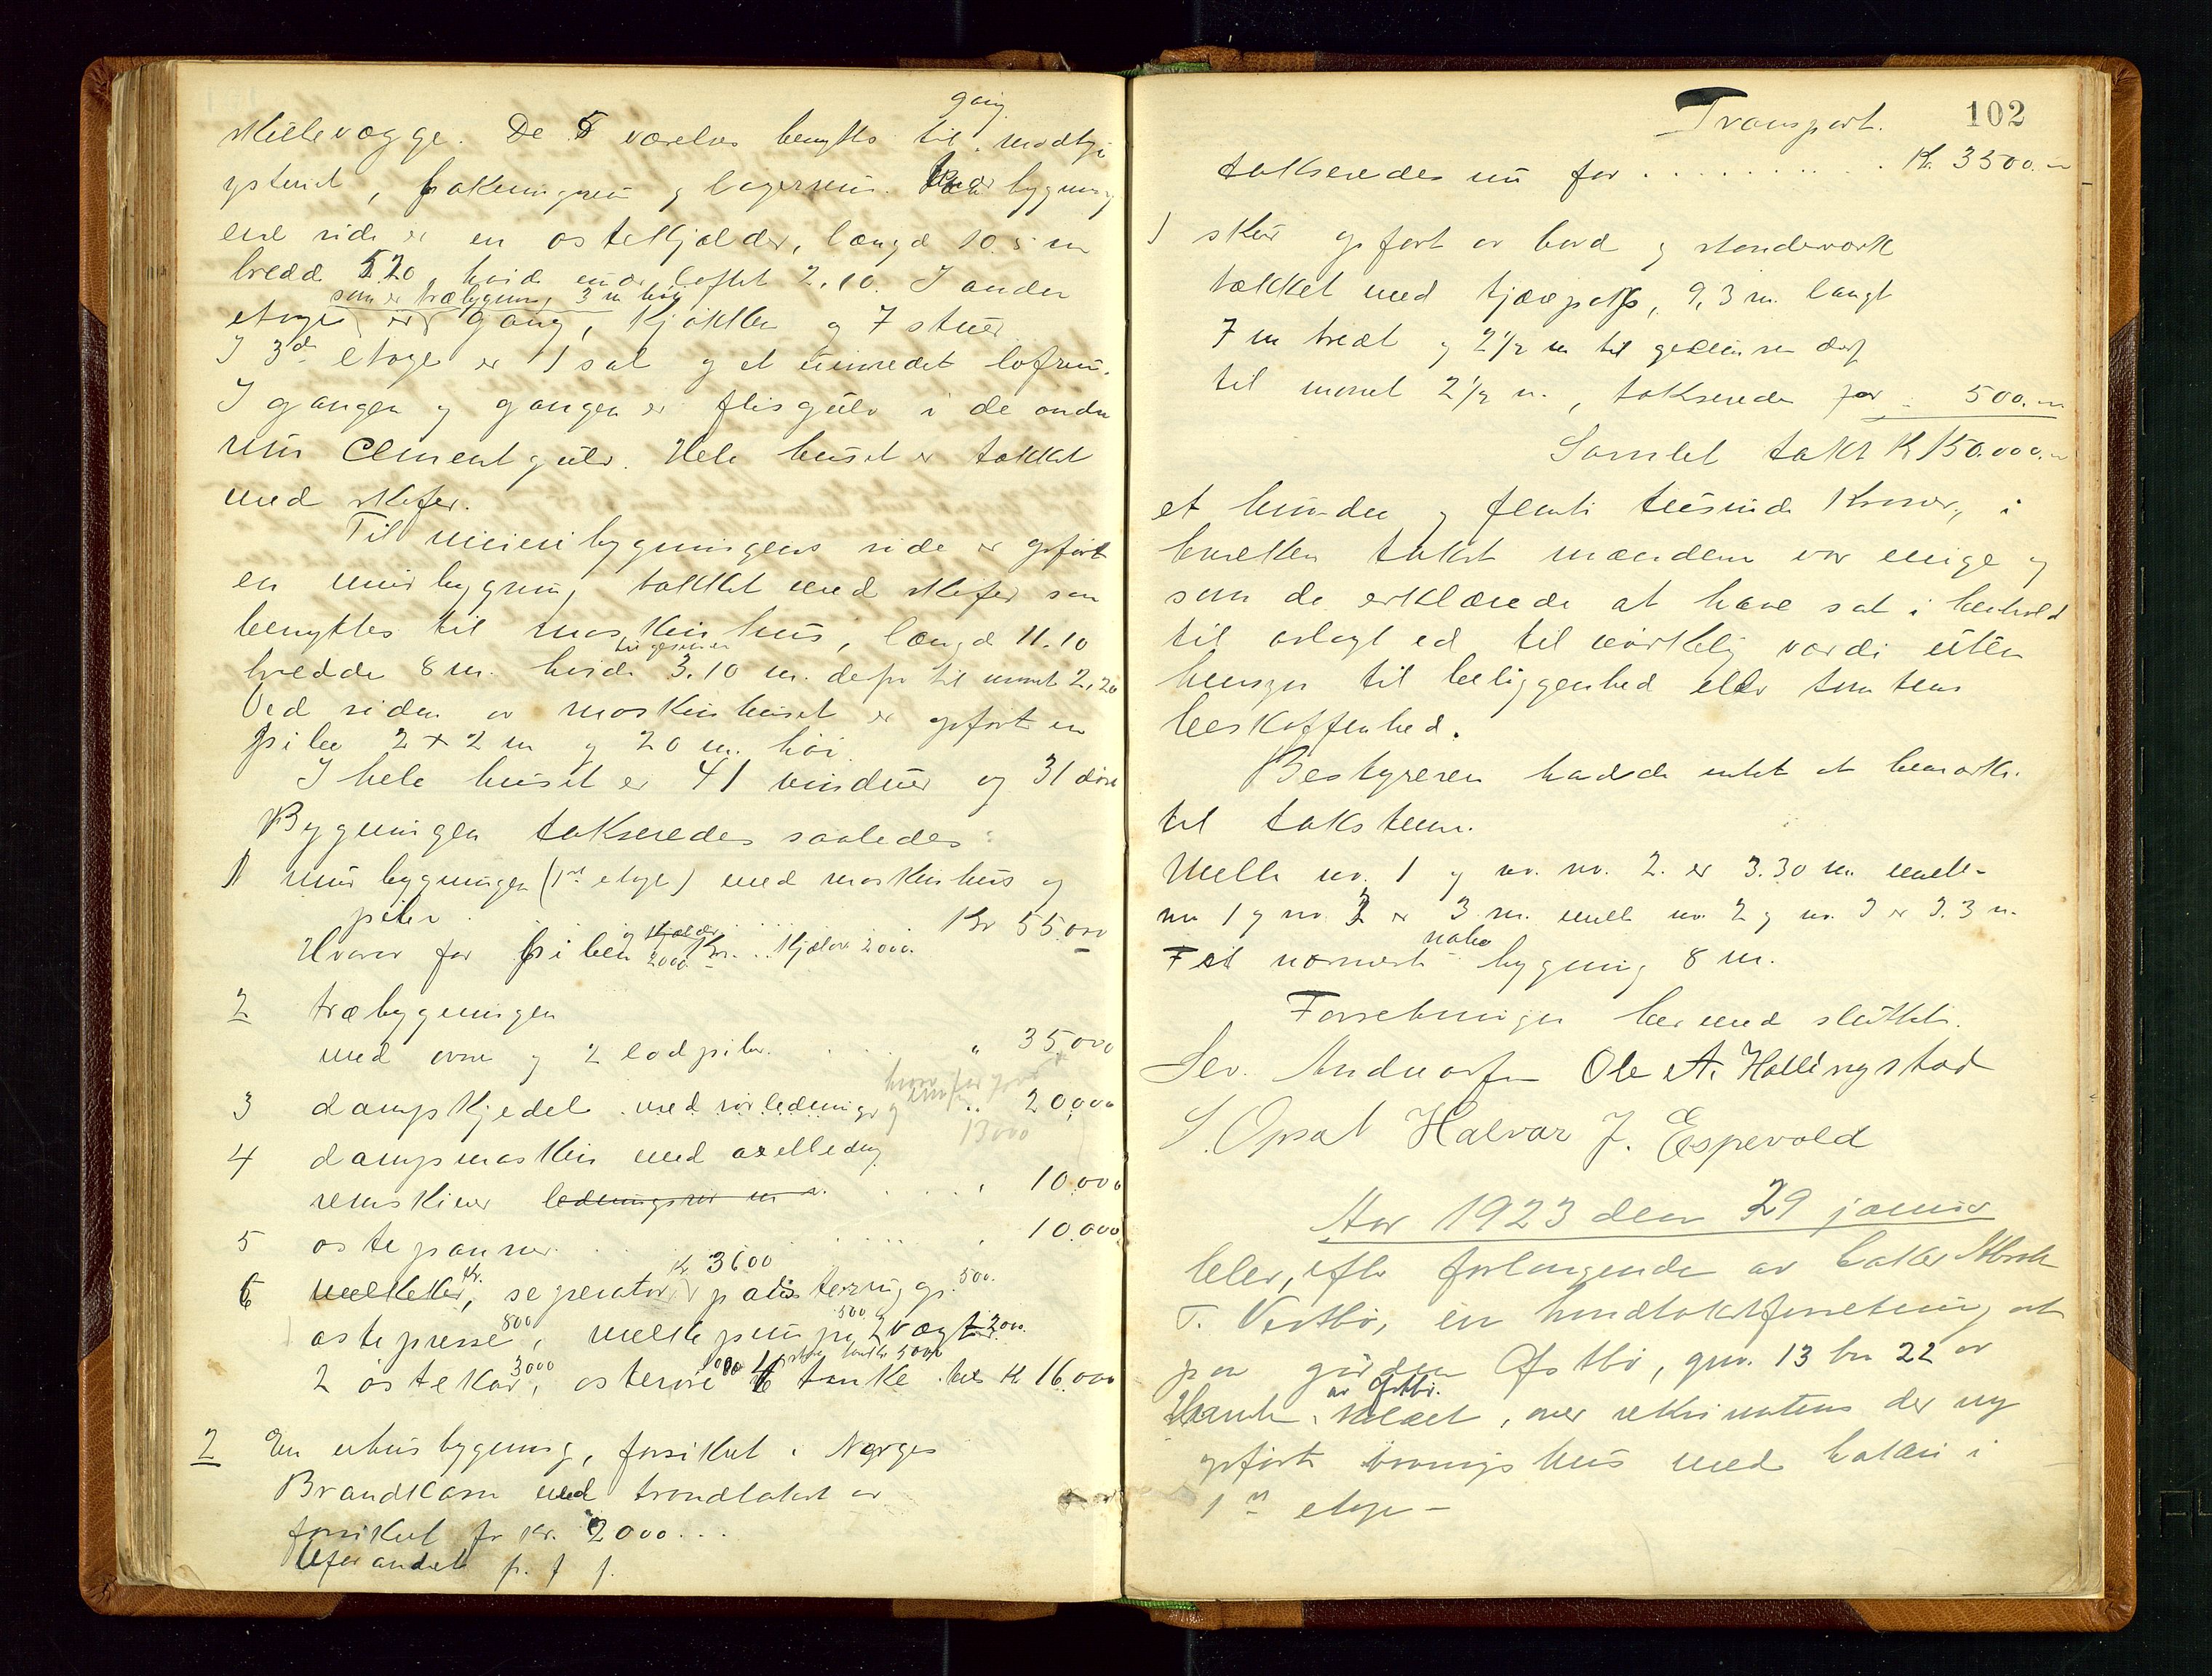 gang
skillevægge. De 5 værelser benyttes til modtg
ysteriet, pakeningsrum og lagerrum. Ved bygning
ens side er en ostekjælder, længd 10.5 m
bredd 5.20, høide under loftet 2,10. I anden
som er træbygning 3 m høi
etage er gang, kjøkken og 7 stuer
I 3de etage er 1 sal og et uinredet lofrum.
I gangen og gangen er flisgulv i de andre
rum Cementgulv. Hele huset er tækket
med skifer.
Til meieribygningens side er opført
en murbygning tækket med skifer som
benyttes til maskinhus, længd 11.10
til gesimsen
bredde 8 m. høide 3.10 m. derfra til mønet 2,20
Ved siden av maskinhuset er opført en
pibe 2 + 2 m og 20 m. høi.
I hele huset er 41 vinduer og 31 døre
Bygningen takseredes saaledes:
1 mur bygningen (1ste etage) med maskinhus og
piber Kr 55.000
og kjælder
Hvorav for piben 2000 Kr. kjælder 2000.
2 træbygningen
med ovne og 2 lodpiber. " 35,000
3 dampkjedel med rørledninger og " 20,000
13000
4 dampmaskin med axelledng
remskiver ledningsrør m. v. " 10,000
5 ostepanner " 10.000
Kr. Kr 3600
6 melkekar, seperator, pasteurings. 500.
800 500
ostepresse, melkepumpe 2 vægt 200.
3000 5000
2 ostekar, osterøre tanke tils Kr 16.000
2 En uthusbygning, forsikret i Norges
Brandkasse med brandtakst av
forsikret for kr. 2000...
Uforandret p. f f.
102
Transport.
takseredes nu for Kr. 3500.-
1 skur opført av bord og stenderverk
tækket med tjærepap, 9,3 m. langt
7 m bredt og 2½ m til gesimsen derfr
til mønet 2½ m., takseredes for 500.-
Samlet takst Kr 150.000.-
et hundre og femti tusinde kroner, i
hvilken takst mændene var enige og
som de erklærede at have sat i henhold
til avlagt ed til virkelig værdi uten
hensyn til beliggenhed eller tomtens
beskaffenhed.
Bestyreren hadde intet at bemærke.
til taksten.
Mellem nr. 1 og nr. nr. 2. er 3.30 m. mellem
nr 1 og nr. 3 er 3 m. mellem nr. 2 og nr. 3 er 3.3 m.
nabo
Til nærmeste bygning 8 m.
Forretningen hermed sluttet.
Sev. Andreassen Ole A. Hallingstad
S. Opsal Halvar J. Espevold
Aar 1923 den 29 januar
blev, efter forlangende av baker
T. Vestbø, en brandtakstforretning avh
paa gaarden Østbø, gnr. 13 bnr 22 av
av Østbø.
, over rekvirentens der ny
opførte vaaningshus med bakeri i
1ste etage -